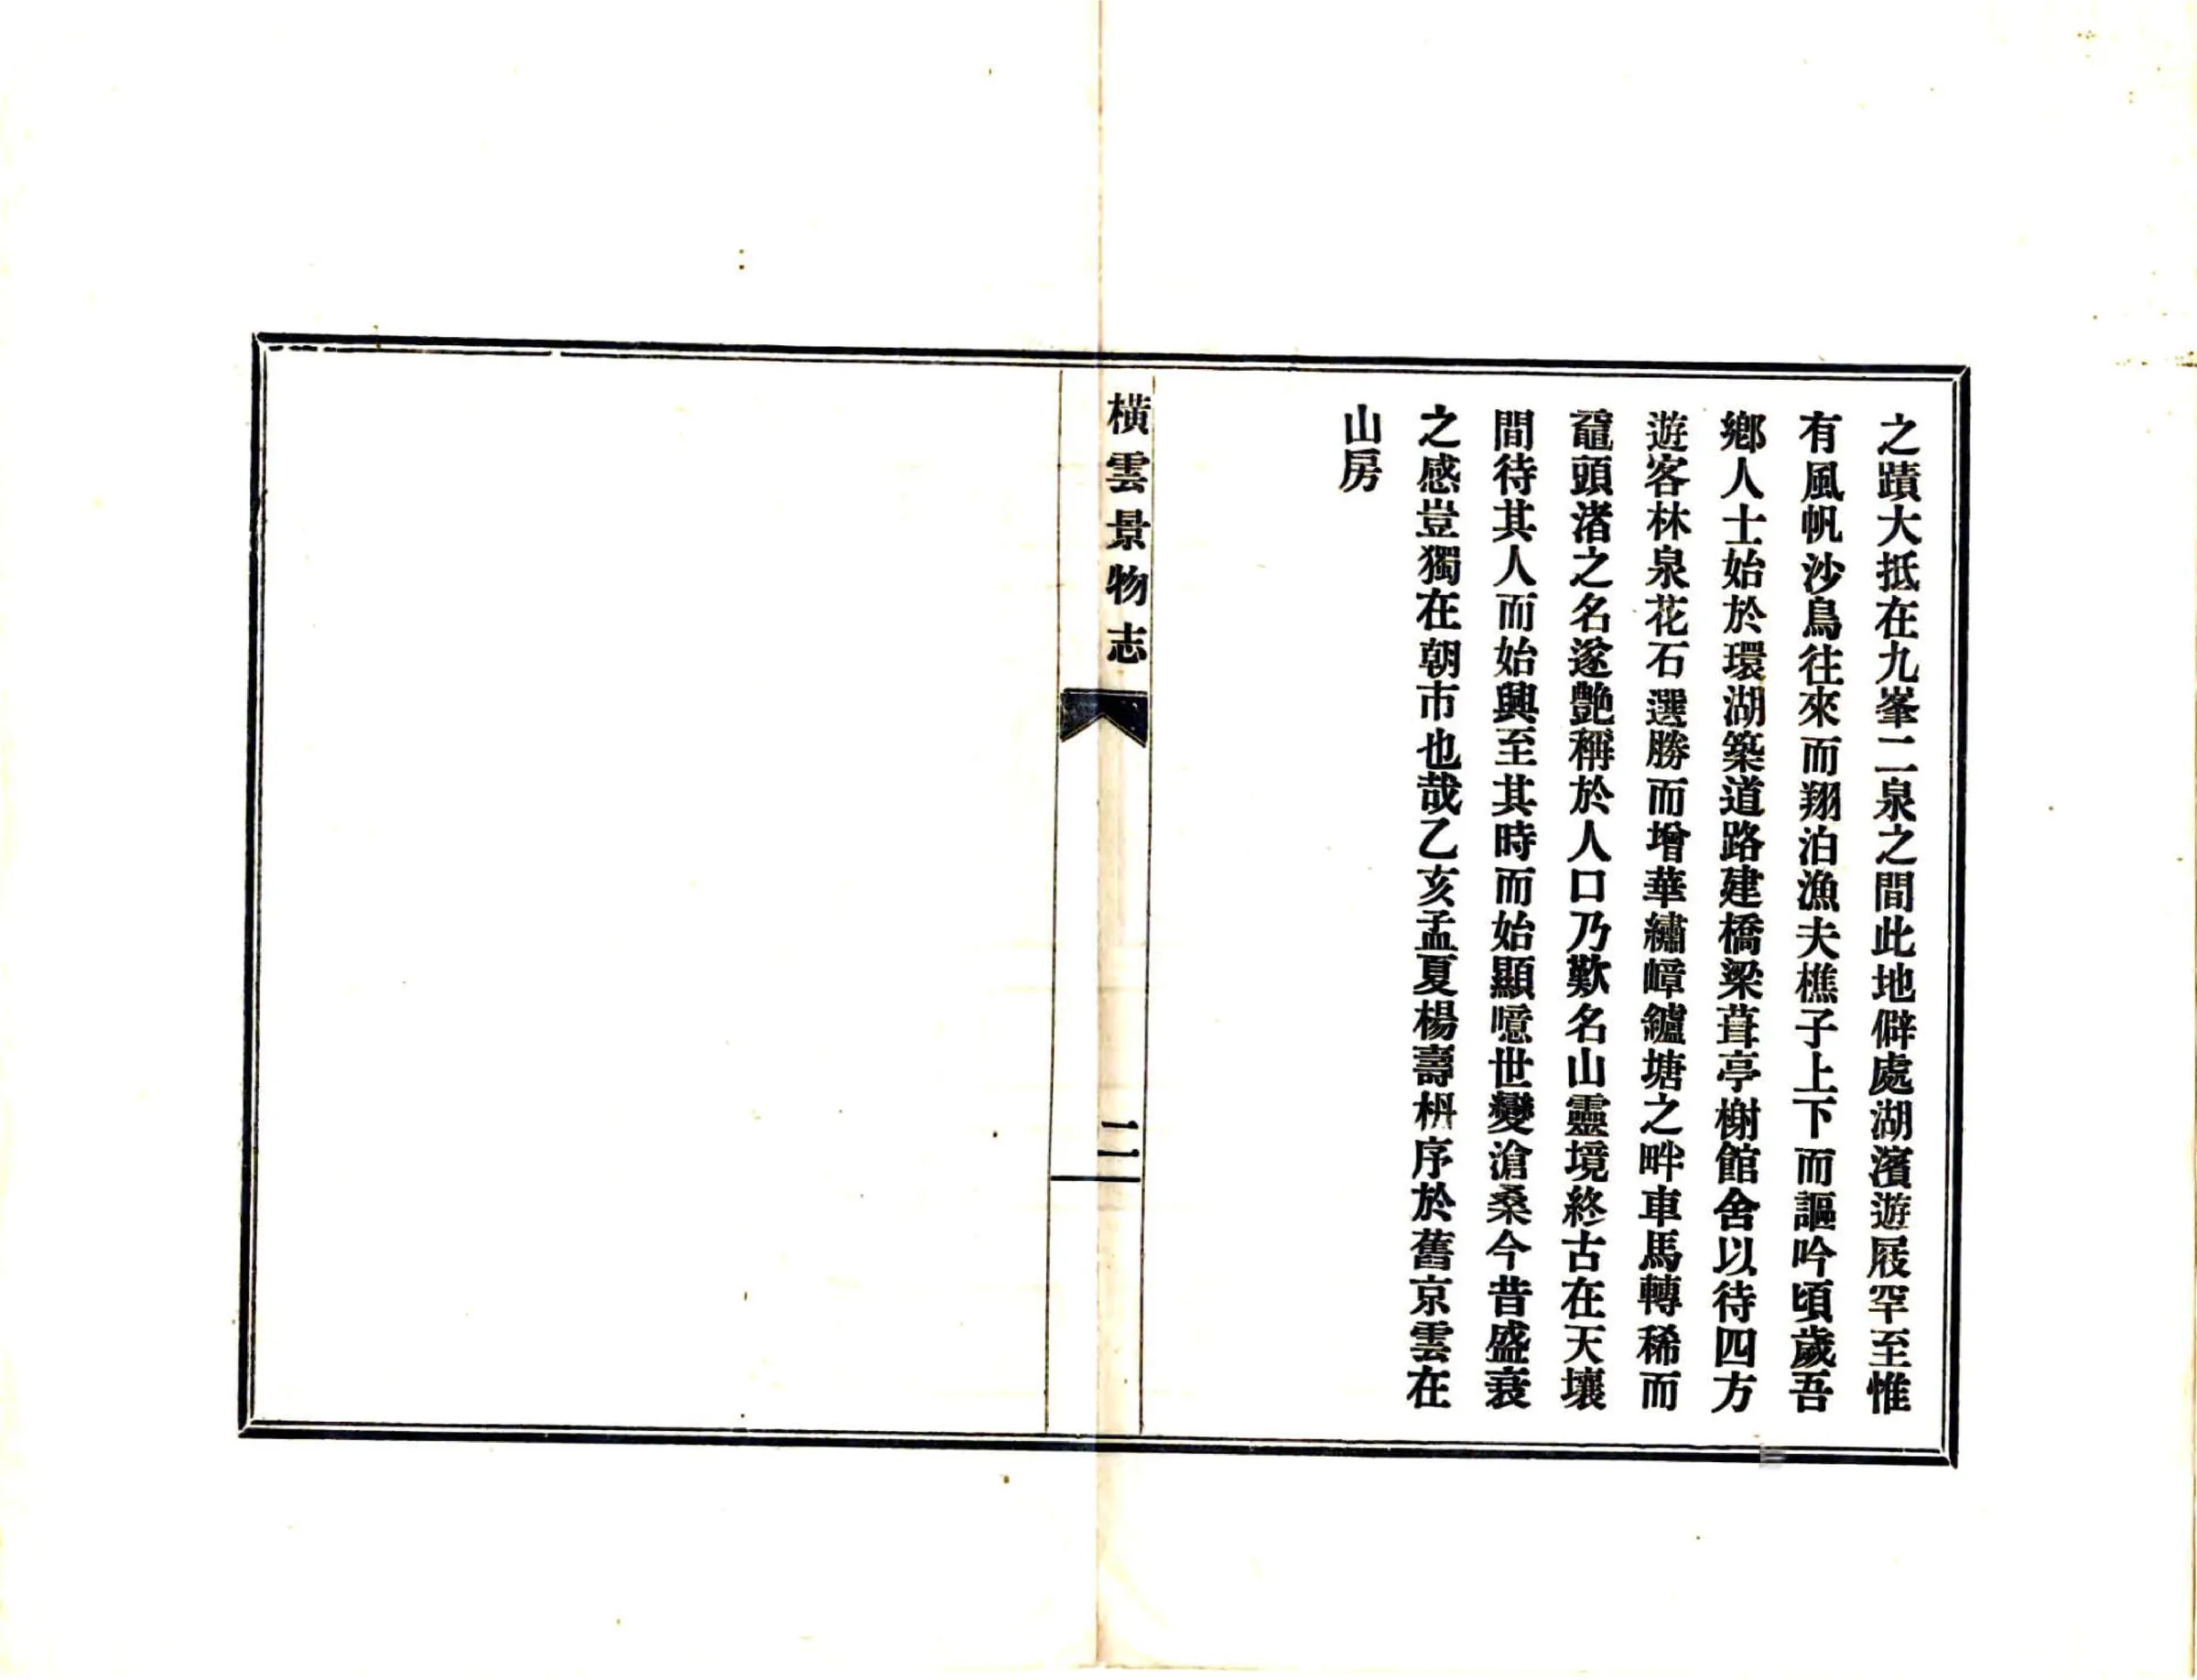 之蹟大抵在九峯二泉之間此地僻處湖濱遊屐罕至惟
有風帆沙鳥往來而翔泊漁夫樵子上下而謳吟頃歲吾
鄉人士始於環湖築道路建橋梁葺亭榭館舍以待四方
遊客林泉花石選勝而增華繡嶂鑪塘之畔車馬轉稀而
黿頭渚之名遂艶稱於人口乃歎名山靈境終古在天壤
間待其人而始興至其時而始顯噫世變滄桑今昔盛衰
之感豈獨在朝市也哉乙亥孟夏楊壽枬序於舊京雲在
山房
橫雲景物志
二